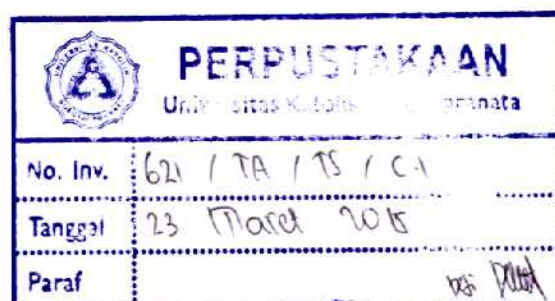 PERPUSTAKAAN
Universitas Katolik
No. Inv. 621 / TA / TS / C.1
Tanggal 23 Maret
Paraf